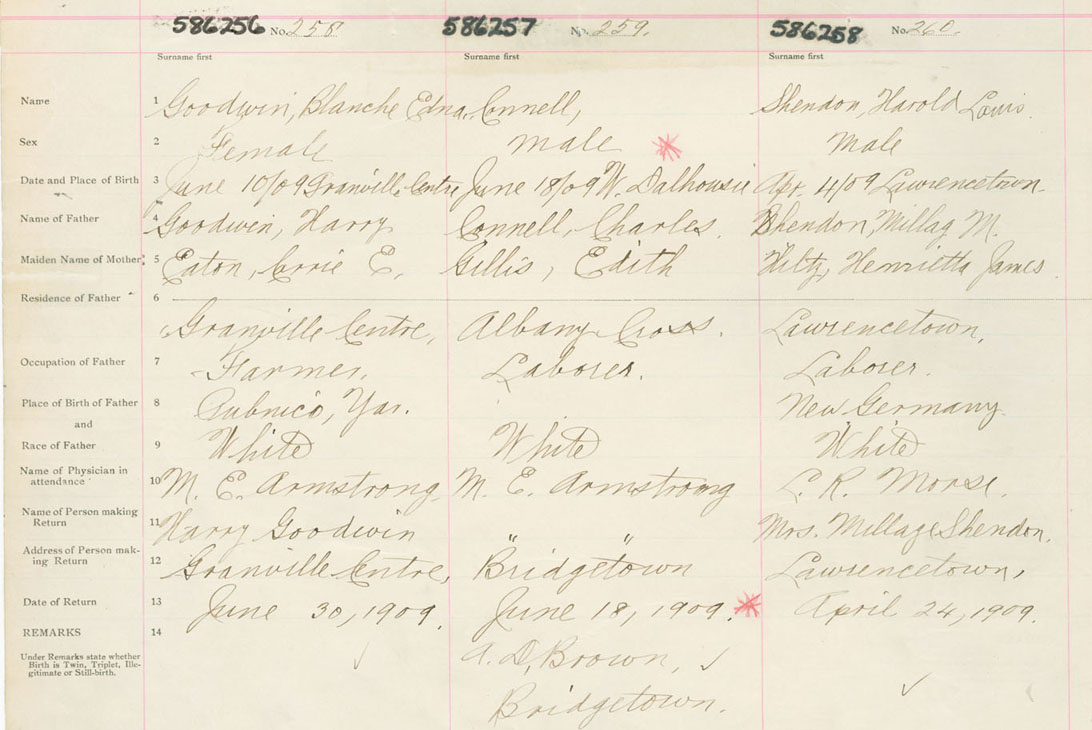 586256 No. 258 586257 No. 259. 586258 No. 260.
Surname first Surname first Surname first
Name 1 Goodwin, Blanche Edna. Connell, Shendon, Harold Louis.
Sex 2 Female Male Male
Date and Place of Birth 3 June 10/09 Granville Centre June 18/09 W. Dalhousie Apr. 4/09 Lawrencetown.
Name of Father 4 Goodwin, Harry Connell, Charles. Shendon, Millag M.
Maiden Name of Mother 5 Eaton, Corrie E. Gillis, Edith Hiltz, Henrietta James
Residence of Father 6
Granville Centre, Albany Cross. Lawrencetown,
Occupation of Father 7 Farmer. Laborer. Laborer.
Place of Birth of Father 8 Pubnico, Yar. New Germany.
and
Race of Father 9 White White White
Name of Physician in
attendance 10 M. E. Armstrong. M. E. Armstrong L. R. Morse.
Name of Person making
Return 11 Harry Goodwin " " Mrs. Millage Shendon.
Address of Person mak-
ing Return 12 Granville Centre, Bridgetown Lawrencetown,
Date of Return 13 June 30, 1909. June 18, 1909. April 24, 1909.
REMARKS 14
Under Remarks state whether
Birth is Twin, Triplet, Ille-
gitimate or Still-birth.
A. D. Brown,
Bridgetown.